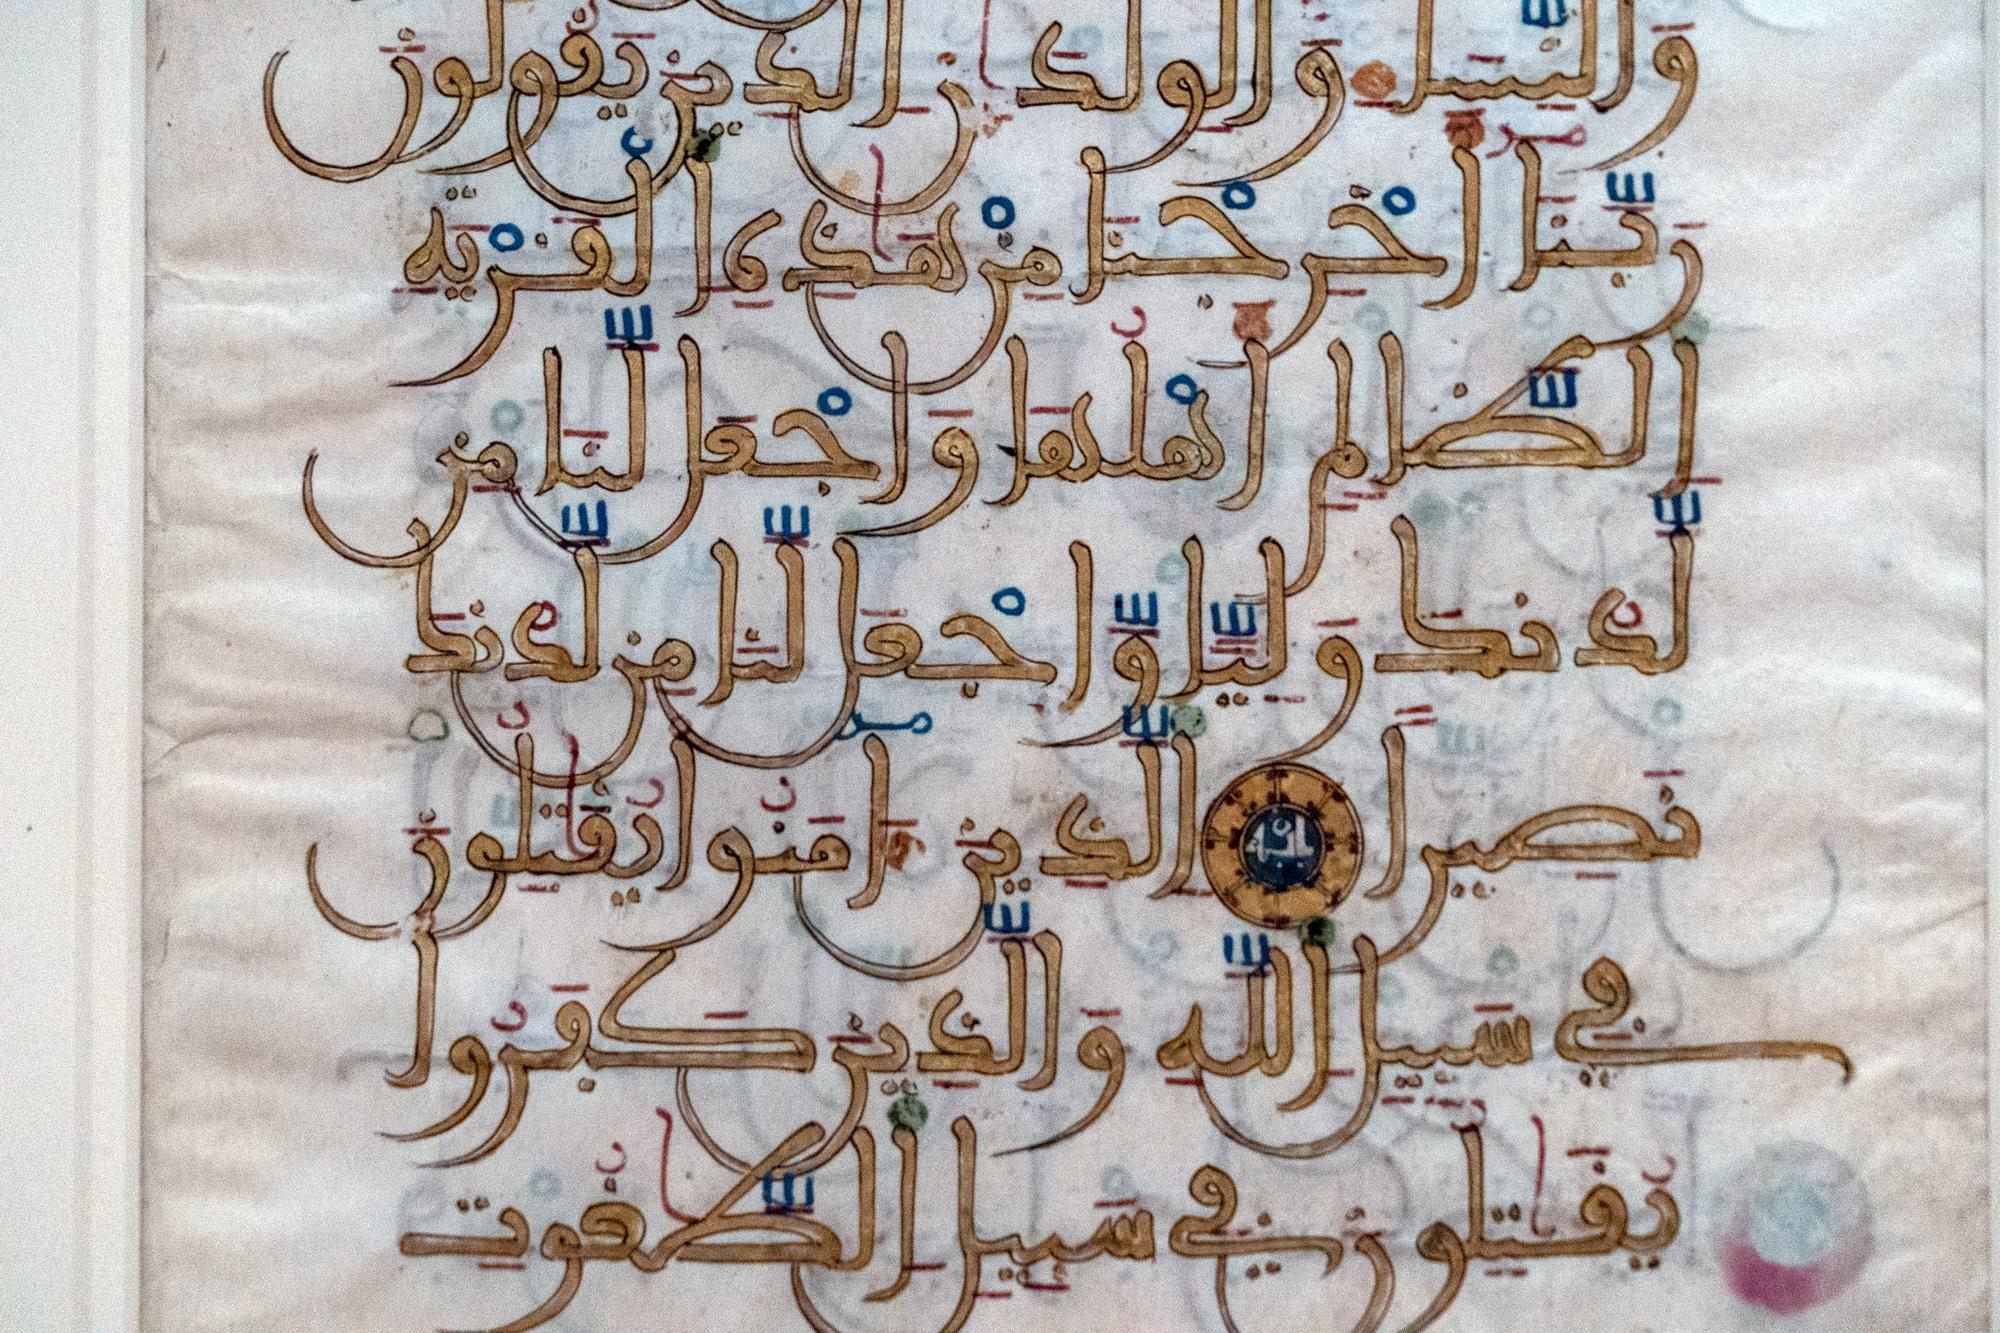 وَالنِّسَآءِ وَالْوِلْدَٰنِ الَّذِينَ يَقُولُونَ
رَبَّنَآ أَخْرِجْنَا مِنْ هَٰذِهِ الْقَرْيَةِ
الظَّالِمِ أَهْلُهَا وَاجْعَل لَّنَا مِن
لَّدُنكَ وَلِيًّا وَّاجْعَل لَّنَا مِن لَّدُنكَ
نَصِيرًا الَّذِينَ ءَامَنُوا يُقَٰتِلُونَ
فِي سَبِيلِ اللَّهِ وَالَّذِينَ كَفَرُوا
يُقَٰتِلُونَ فِي سَبِيلِ الطَّٰغُوتِ